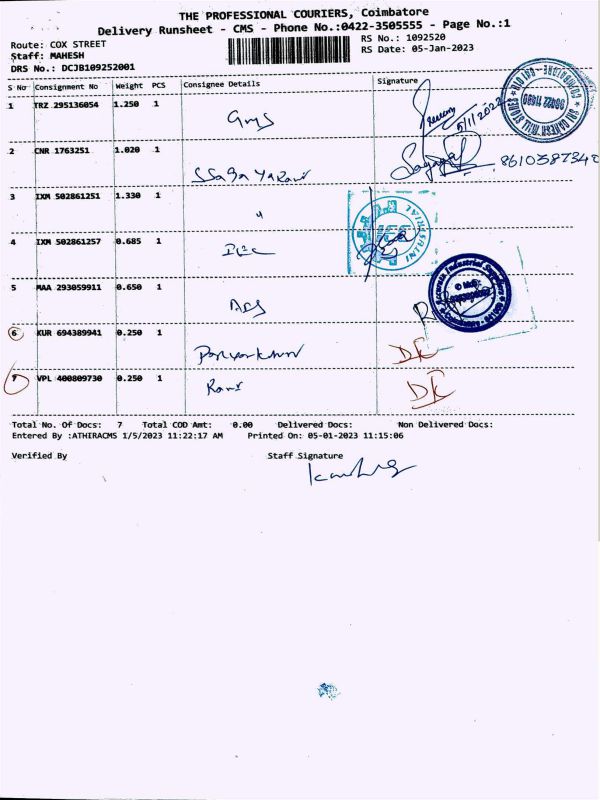 THE PROFESSIONAL COURIERS, Coimbatore
Delivery Runsheet - CMS - Phone No.:0422-3505555 - Page No.:1
Route: COX STREET
RS No.: 1092520
Staff: MAHESH
RS Date: 05-Jan-2023
DRS No.: DCJB109252001
S No Consignment No Weight PCS Consignee Details Signature
1 TRZ 295136054 1.250 1
2 CNR 1763251 1.020 1
8610387340
3 IXM 502861251 1.330 1 "
4 IXM 502861257 0.685 1
5 MAA 293059911 0.650 1 ADS
6 KUR 694389941 0.250 1 DK
7 VPL 400809730 0.250 1 Ravi DK
Total No. Of Docs: 7 Total COD Amt: 0.00 Delivered Docs: Non Delivered Docs:
Entered By :ATHIRACMS 1/5/2023 11:22:17 AM Printed On: 05-01-2023 11:15:06
Verified By Staff Signature